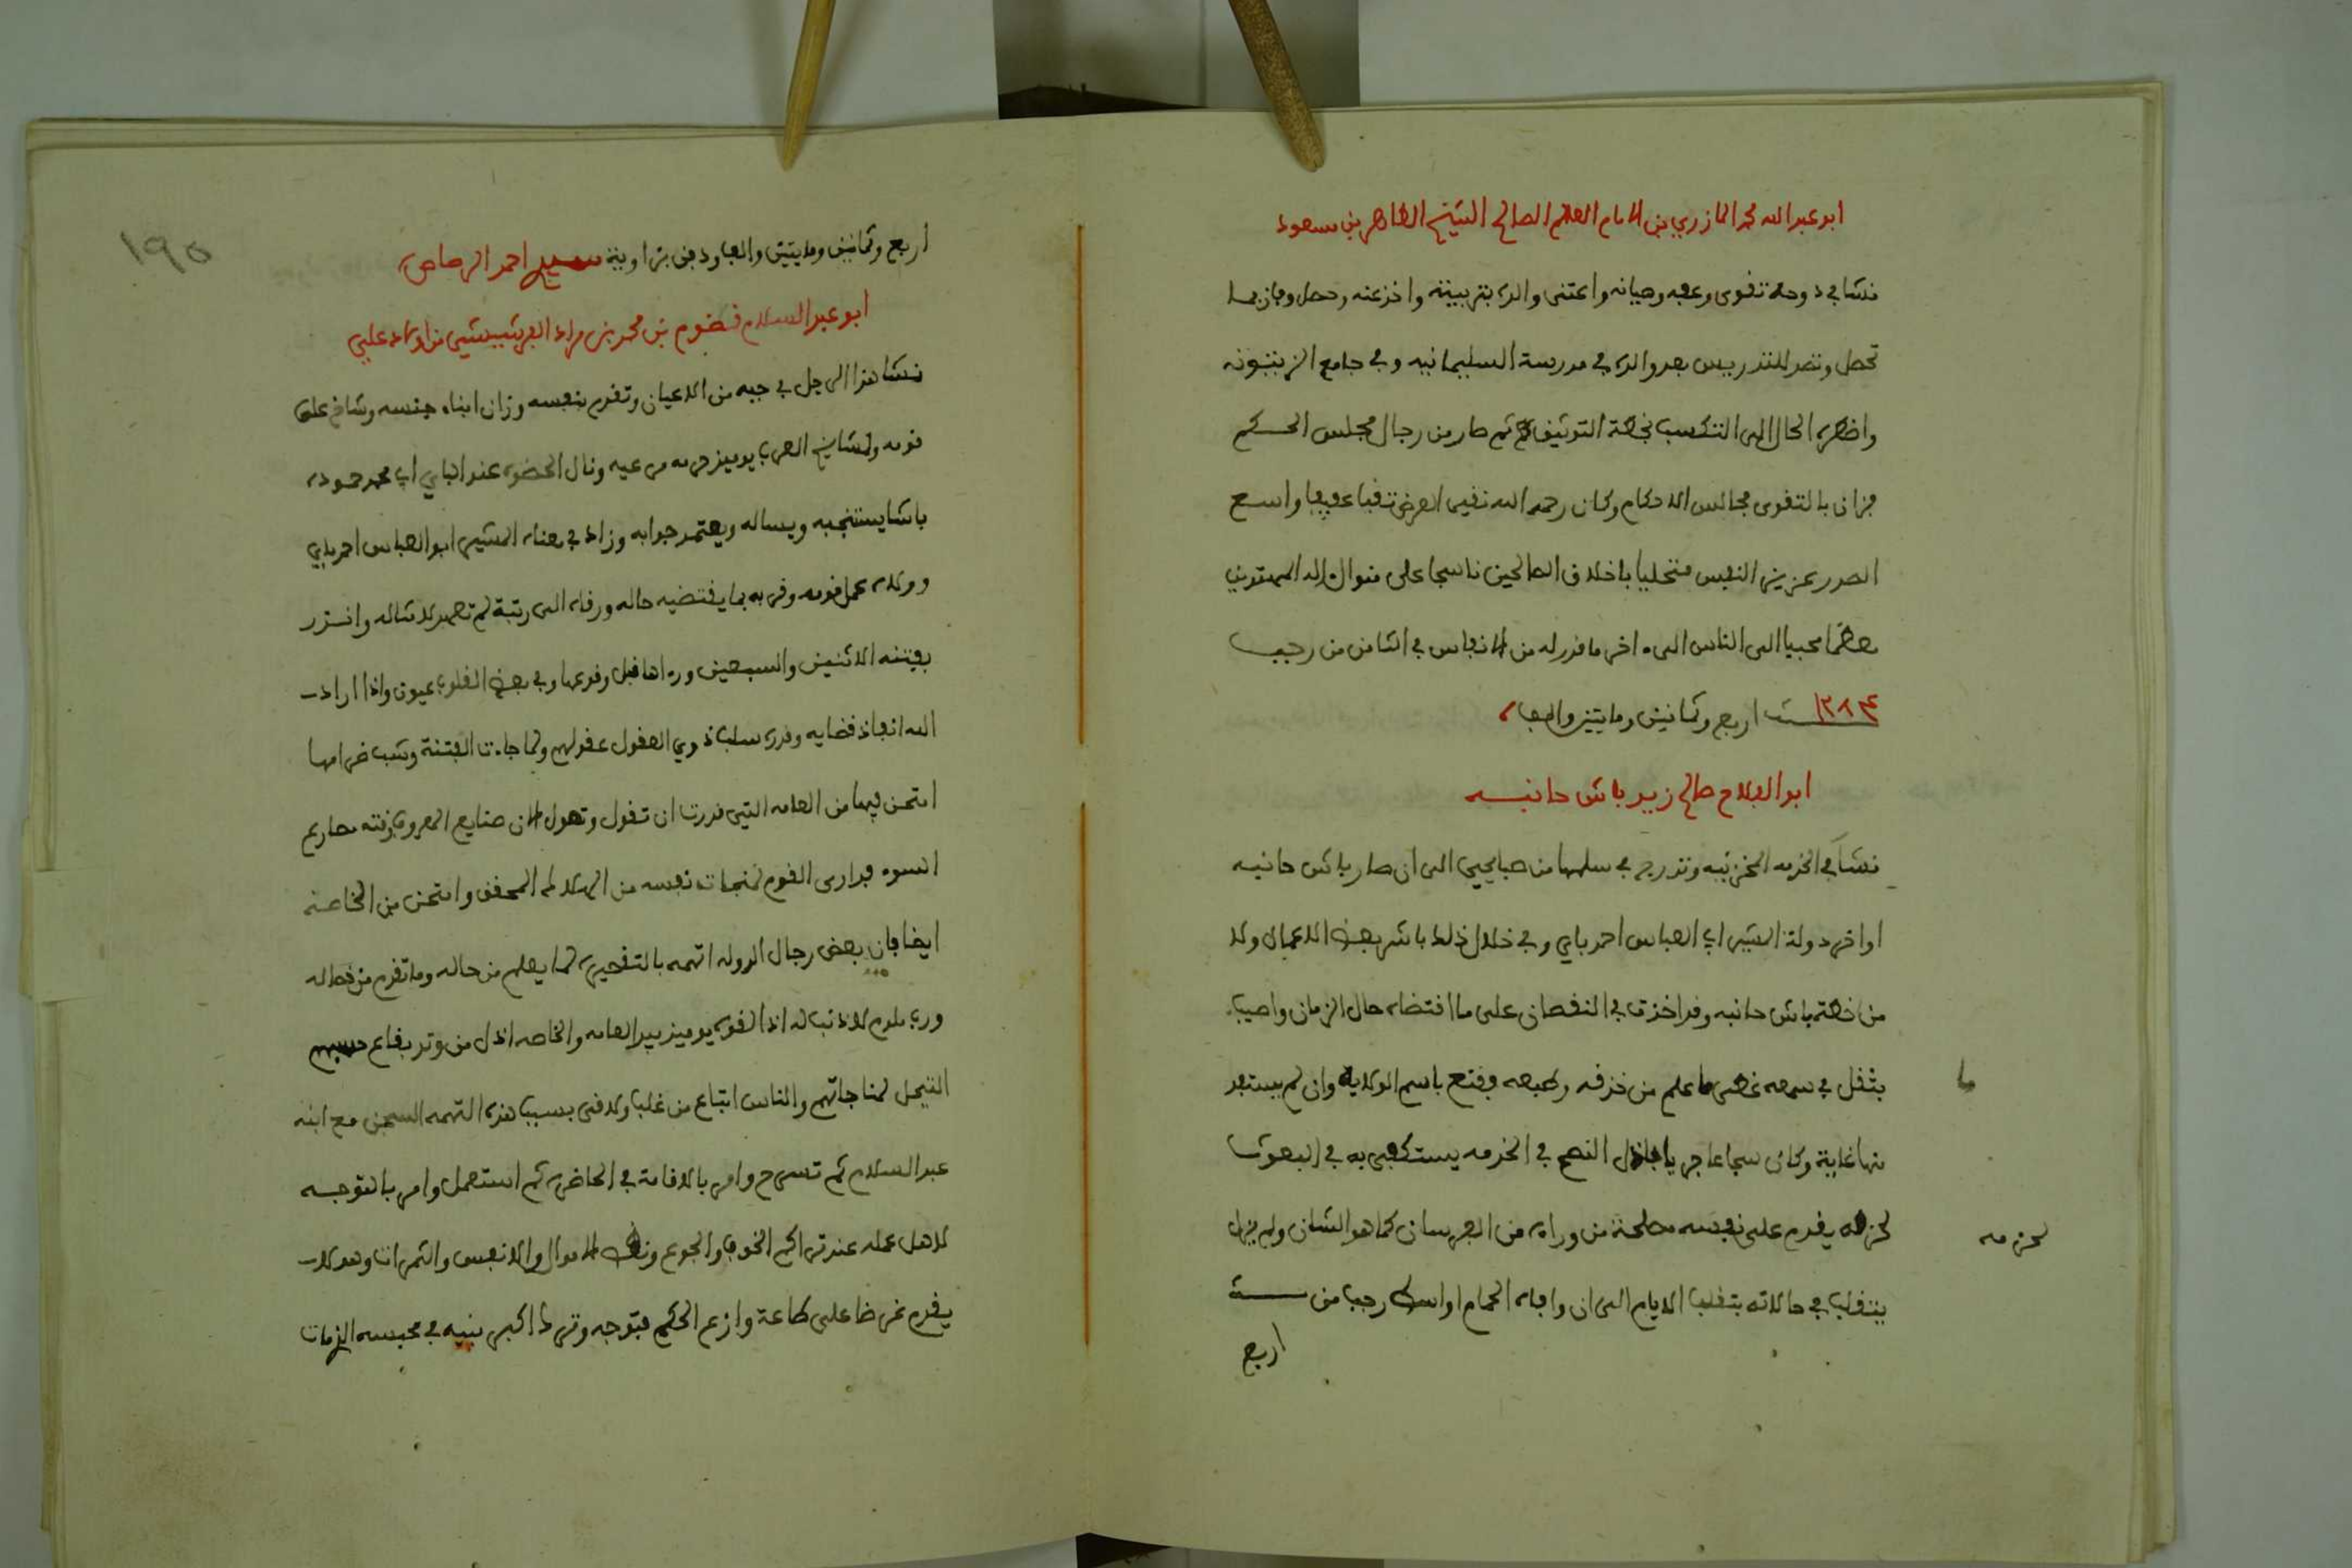 ابو عبد الله محمد المازري بن الامام العالم الصالح الشيخ الطاهر بن مسعود
نشا في دوحة تقوى وعفه وصيانه واعتنى والده بتربيته واخذ عنه وحصل وفاز بما
تحصل وتصدر للتدريس بعد والده في مدرسة السليمانيه وفي جامع الزيتونه
واضطره الحال الى التكسب بخطة التوثيق ثم صار من رجال مجلس الحكم
فزان بالتقوى مجالس الاحكام وكان رحمه الله نقي العرض ثقة عفيفا واسع
الصدر عزيز النفس متحليا باخلاق الصالحين ناسجا على منوال اله المهتدين
معظما محببا الى الناس الى اخر ما قدر له من الانفاس في الثامن من رجب
سنة ١٢٨٤ اربع وثمانين ومايتين والف
ابو الفلاح صالح زيد باش حانبه
نشا في الخدمه المخزنيه وتدرج في سلمها من صبايحي الى ان صار باش حانبه
اواخر دولة المشير ابي العباس احمد باي وفي خلال ذلك باشر بعض الاعمال ولا
من خطة باش حانبه وقد اخذت في النقصان على ما اقتضاه حال الزمان واصيب
بثقل في سمعه غطى ما علم من حذقه وطبعه وقنع باسم الولاية وان لم يستفد
ما
منها غاية وكان شجاعا جريا باذل النصح في الخدمه يستكفى به في البعوث
لحزمه يقدم على نفسه مصلحة من وراءه من الفرسان كما هو الشان ولم يزل
لحزمه
يتقلب في حالاته بتقلب الايام الى ان وافاه الحمام اواسط رجب من سنة
اربع
١٩٥
اربع وثمانين ومايتين والف ودفن بزاوية سيدي احمد الرصاص
ابو عبد السلام قضوم بن محمد بن مراد الفرشيشي من اولاد علي
نشا هذا الرجل في جبه من الاعيان وتقدم بنفسه وزان ابناء جنسه وشاخ على
قومه ولمشايخ العرب يوميذ حرمه مرعيه ونال الحضوه عند الباي ابي محمد حموده
باشا يستنجبه ويساله ويعتمد جوابه وزاد في معناه المشير ابو العباس احمد باي
وولاه عمل قومه وقربه بما يقتضيه حاله ورقاه الى رتبة لم تعهد لامثاله وانذر
بفتنه الاثنين والسبعين ورءاها قبل وقوعها وفي بعض القلوب عيون واذا اراد
الله انفاذ قضايه وقدره سلب ذوي العقول عقولهم ولما جاءت الفتنة وشب ضرامها
امتحن فيها من العامه التي قدرت ان تقول وتصول لان صنايع المعروف وقته مصارع
السوء فدارى القوم لمنجاة نفسه من الهلاك المحقق وامتحن من الخاصة
ايضا فان بعض رجال الدوله اتهمه بالتقصير لما يعلم من حاله وما تقدم من فعاله
ورب ملوم لا ذنب له اذ القوه يوميذ بيد العامه والخاصه اذل من وتد بقاع حسبهم
التحيل لمناجاتهم والناس اتباع من غلب ولاقى بسبب هذه التهمه السجن مع ابنه
عبد السلام ثم تسرح وامر بالاقامة في الحاضره ثم استعمل وامر بالتوجه
لاهل عمله عند تراكم الخوف والجوع ونقص الاموال والانفس والثمرات وهو لا
يقدم غرضا على طاعة وازع الحكم فتوجه وترك اكبر بنيه في محبسه الزمات